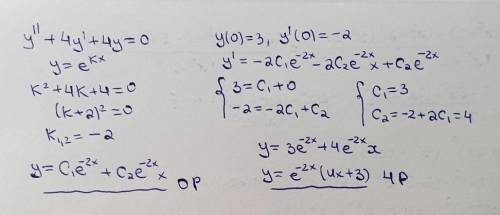 y'' + 4y' + 4y = 0
y = e^{kx}
k² + 4k + 4 = 0
(k + 2)² = 0
k_{1,2} = -2
y = C₁e^{-2x} + C₂e^{-2x}x OP
y(0) = 3, y'(0) = -2
y' = -2C₁e^{-2x} - 2C₂e^{-2x}x + C₂e^{-2x}
{ 3 = C₁ + 0 { C₁ = 3
-2 = -2C₁ + C₂ C₂ = -2 + 2C₁ = 4
y = 3e^{-2x} + 4e^{-2x}x
y = e^{-2x}(4x + 3) ЧР